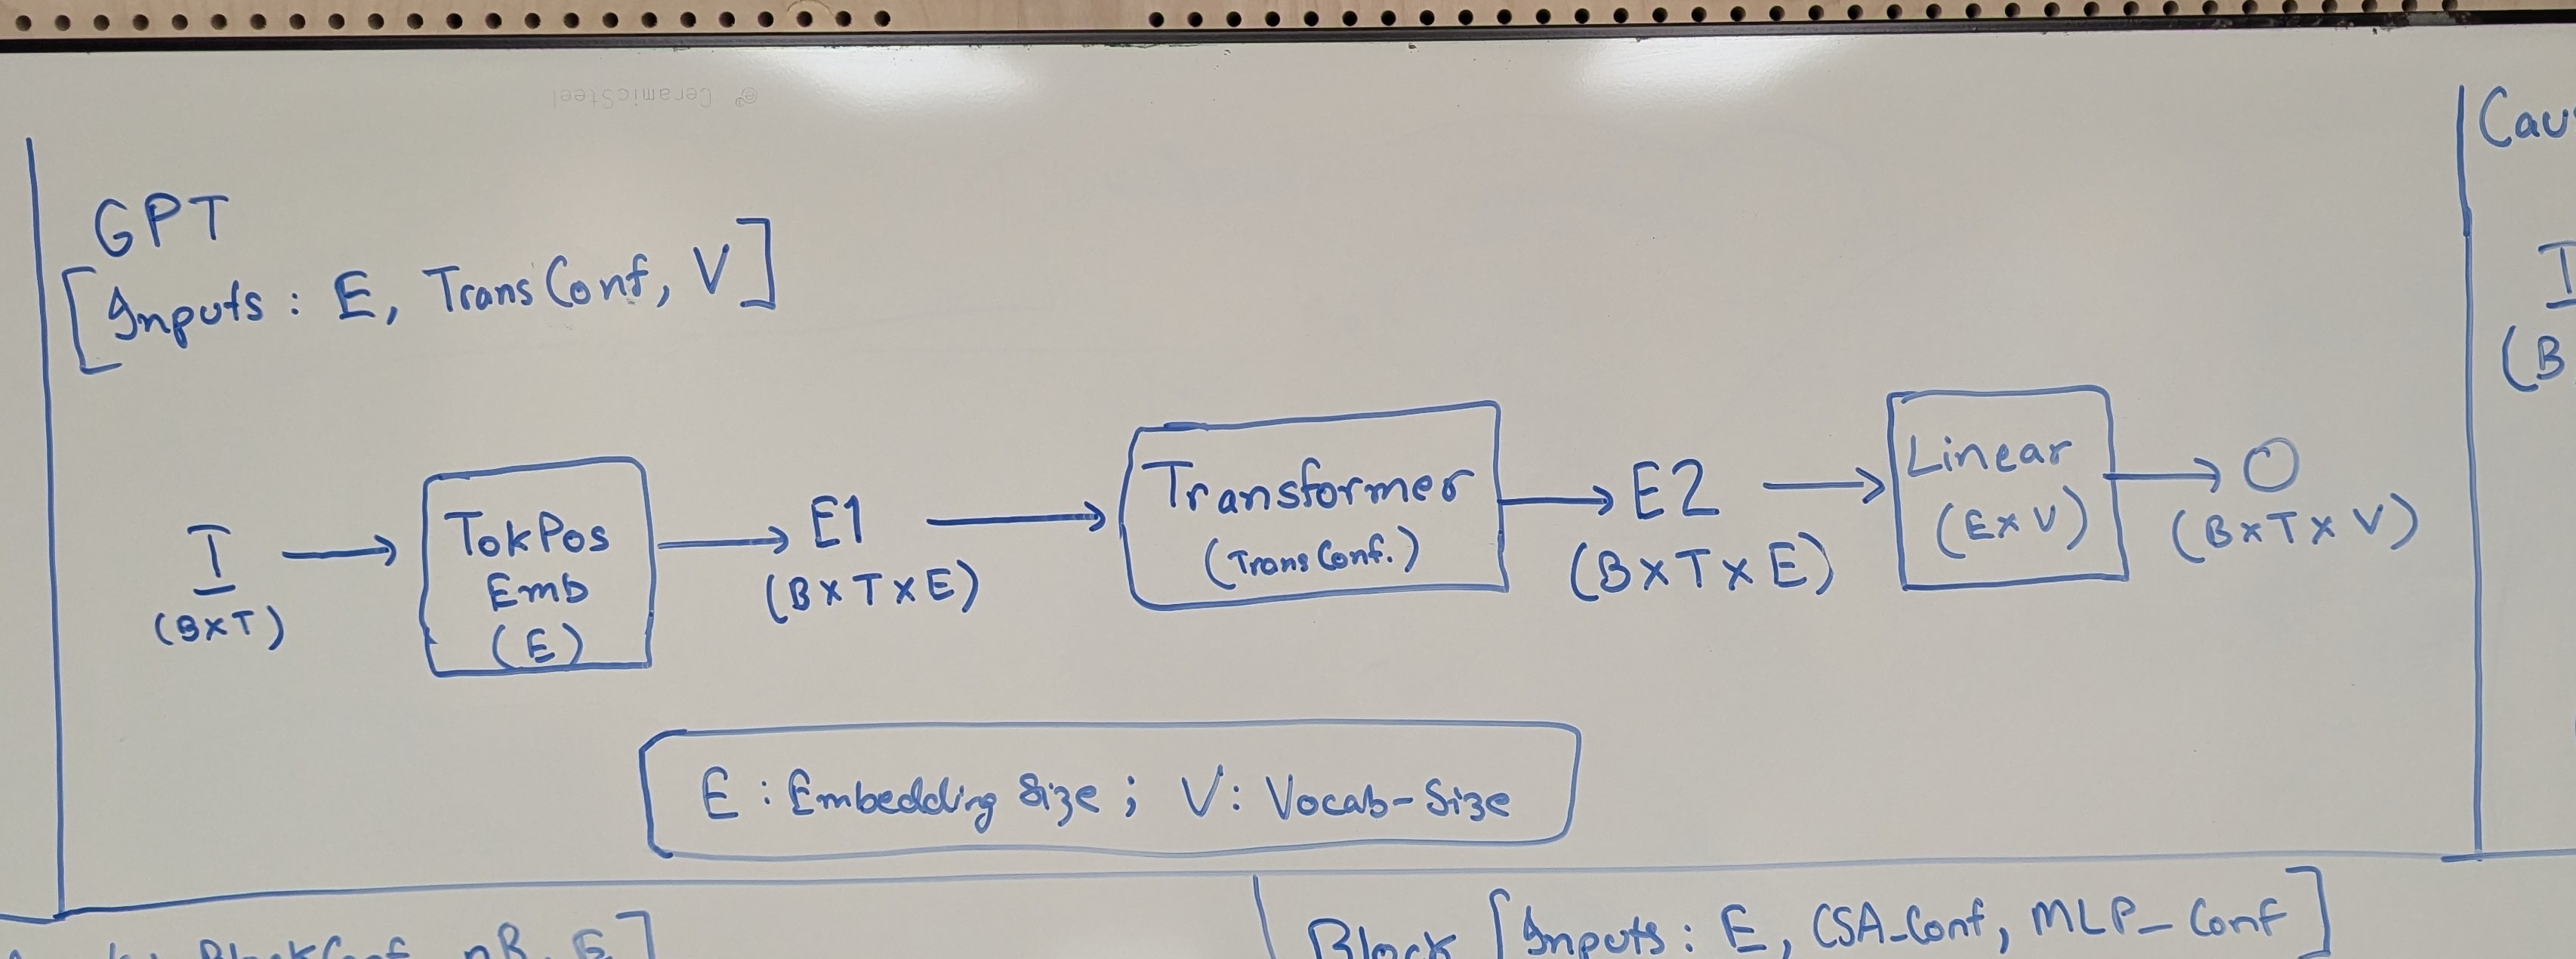 CeramicSteel
GPT
[Inputs : E, TransConf, V]
I
(B×T)
TokPos
Emb
(E)
E1
(B×T×E)
Transformer
(TransConf.)
E2
(B×T×E)
Linear
(E×V)
O
(B×T×V)
E : Embedding Size ; V : Vocab-Size
Cau
I
(B
BlockConf, nB, E]
Block [Inputs : E, CSA_Conf, MLP_Conf]